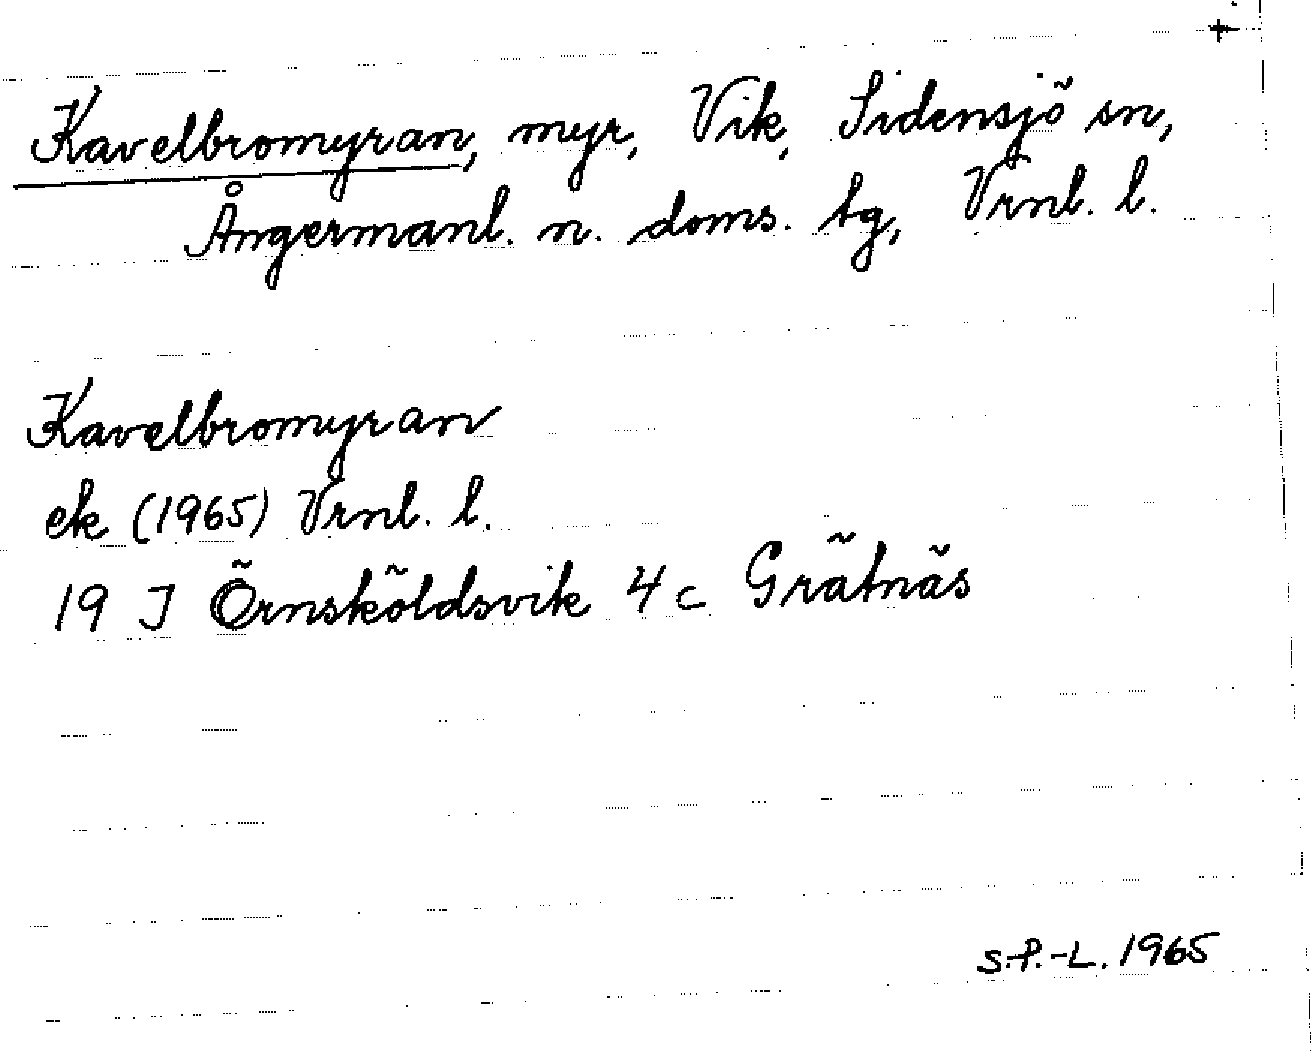 +
Kavelbromyran, myr, Vik, Sidensjö sn,
Ångermanl. n. doms. tg, Vrnl. l.
Kavelbromyran
ek (1965) Vrnl. l.
19 J Örnsköldsvik 4 c Grätnäs
S.-P.-L. 1965